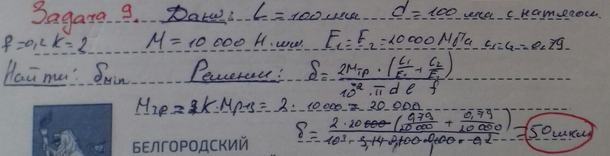 Задача 9. Дано: L = 100 мм d = 100 мм с натягом
f = 0,2 K = 2 M = 10 000 Н·мм E₁ = E₂ = 20000 МПа c₁ = c₂ = 0,79
Найти: δ Решение: δ = 2Mтр · (C₁/E₁ + C₂/E₂) / 10⁻³ · π d l f
Mтр = K · Mрез = 2 · 10.000 = 20.000
δ = 2 · 20 000 (0,79/20000 + 0,79/20000) / 10³ · 3,14 · 0,2 = 50 мкм
БЕЛГОРОДСКИЙ